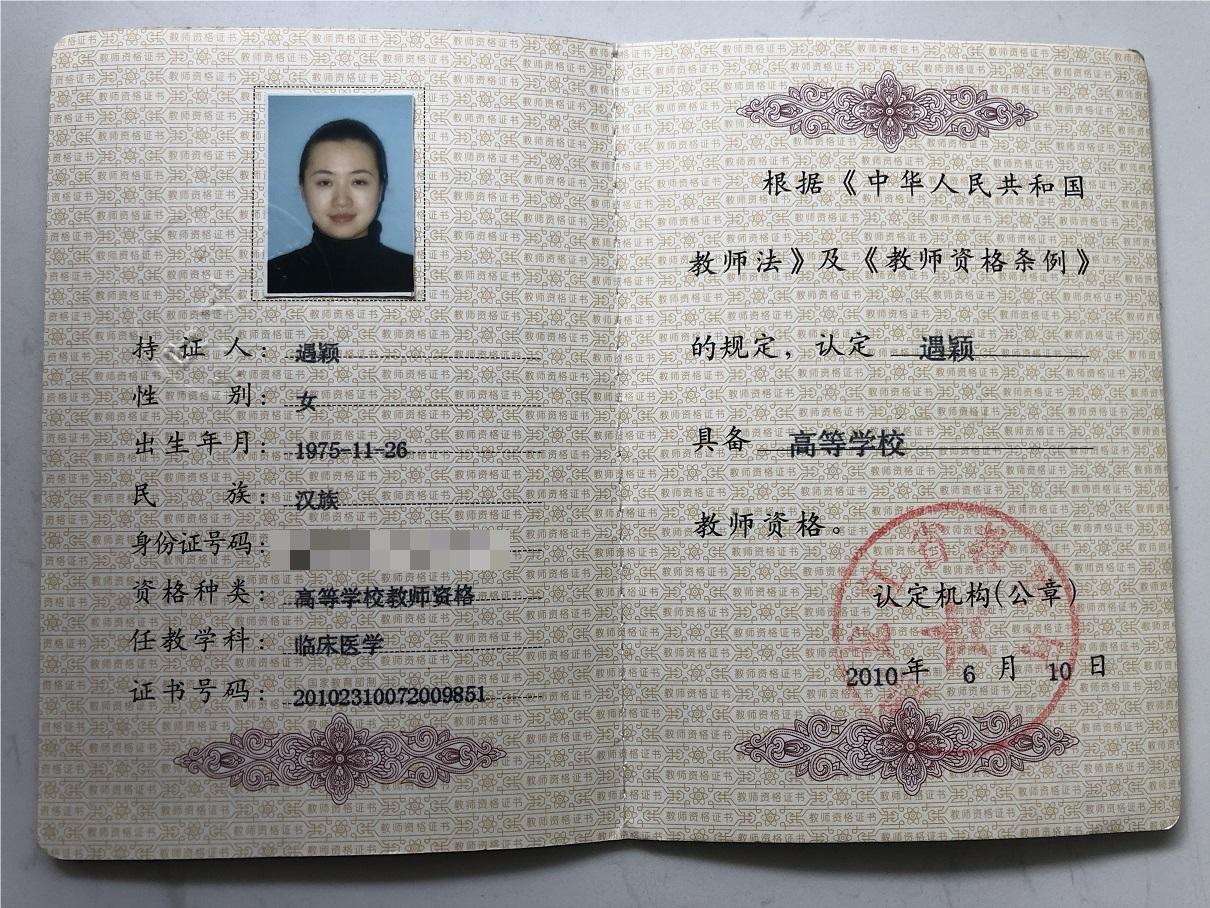 持证人：遇颖
性别：女
出生年月：1975-11-26
民族：汉族
身份证号码：
资格种类：高等学校教师资格
任教学科：临床医学
证书号码：20102310072009851
根据《中华人民共和国
教师法》及《教师资格条例》
的规定，认定 遇颖
具备 高等学校
教师资格。
认定机构(公章)
2010年 6 月 10 日